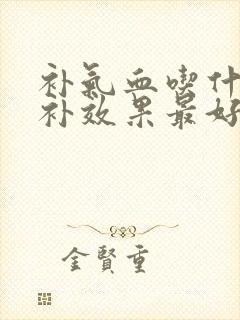 补氣血喫什
补效果最好
金賢重